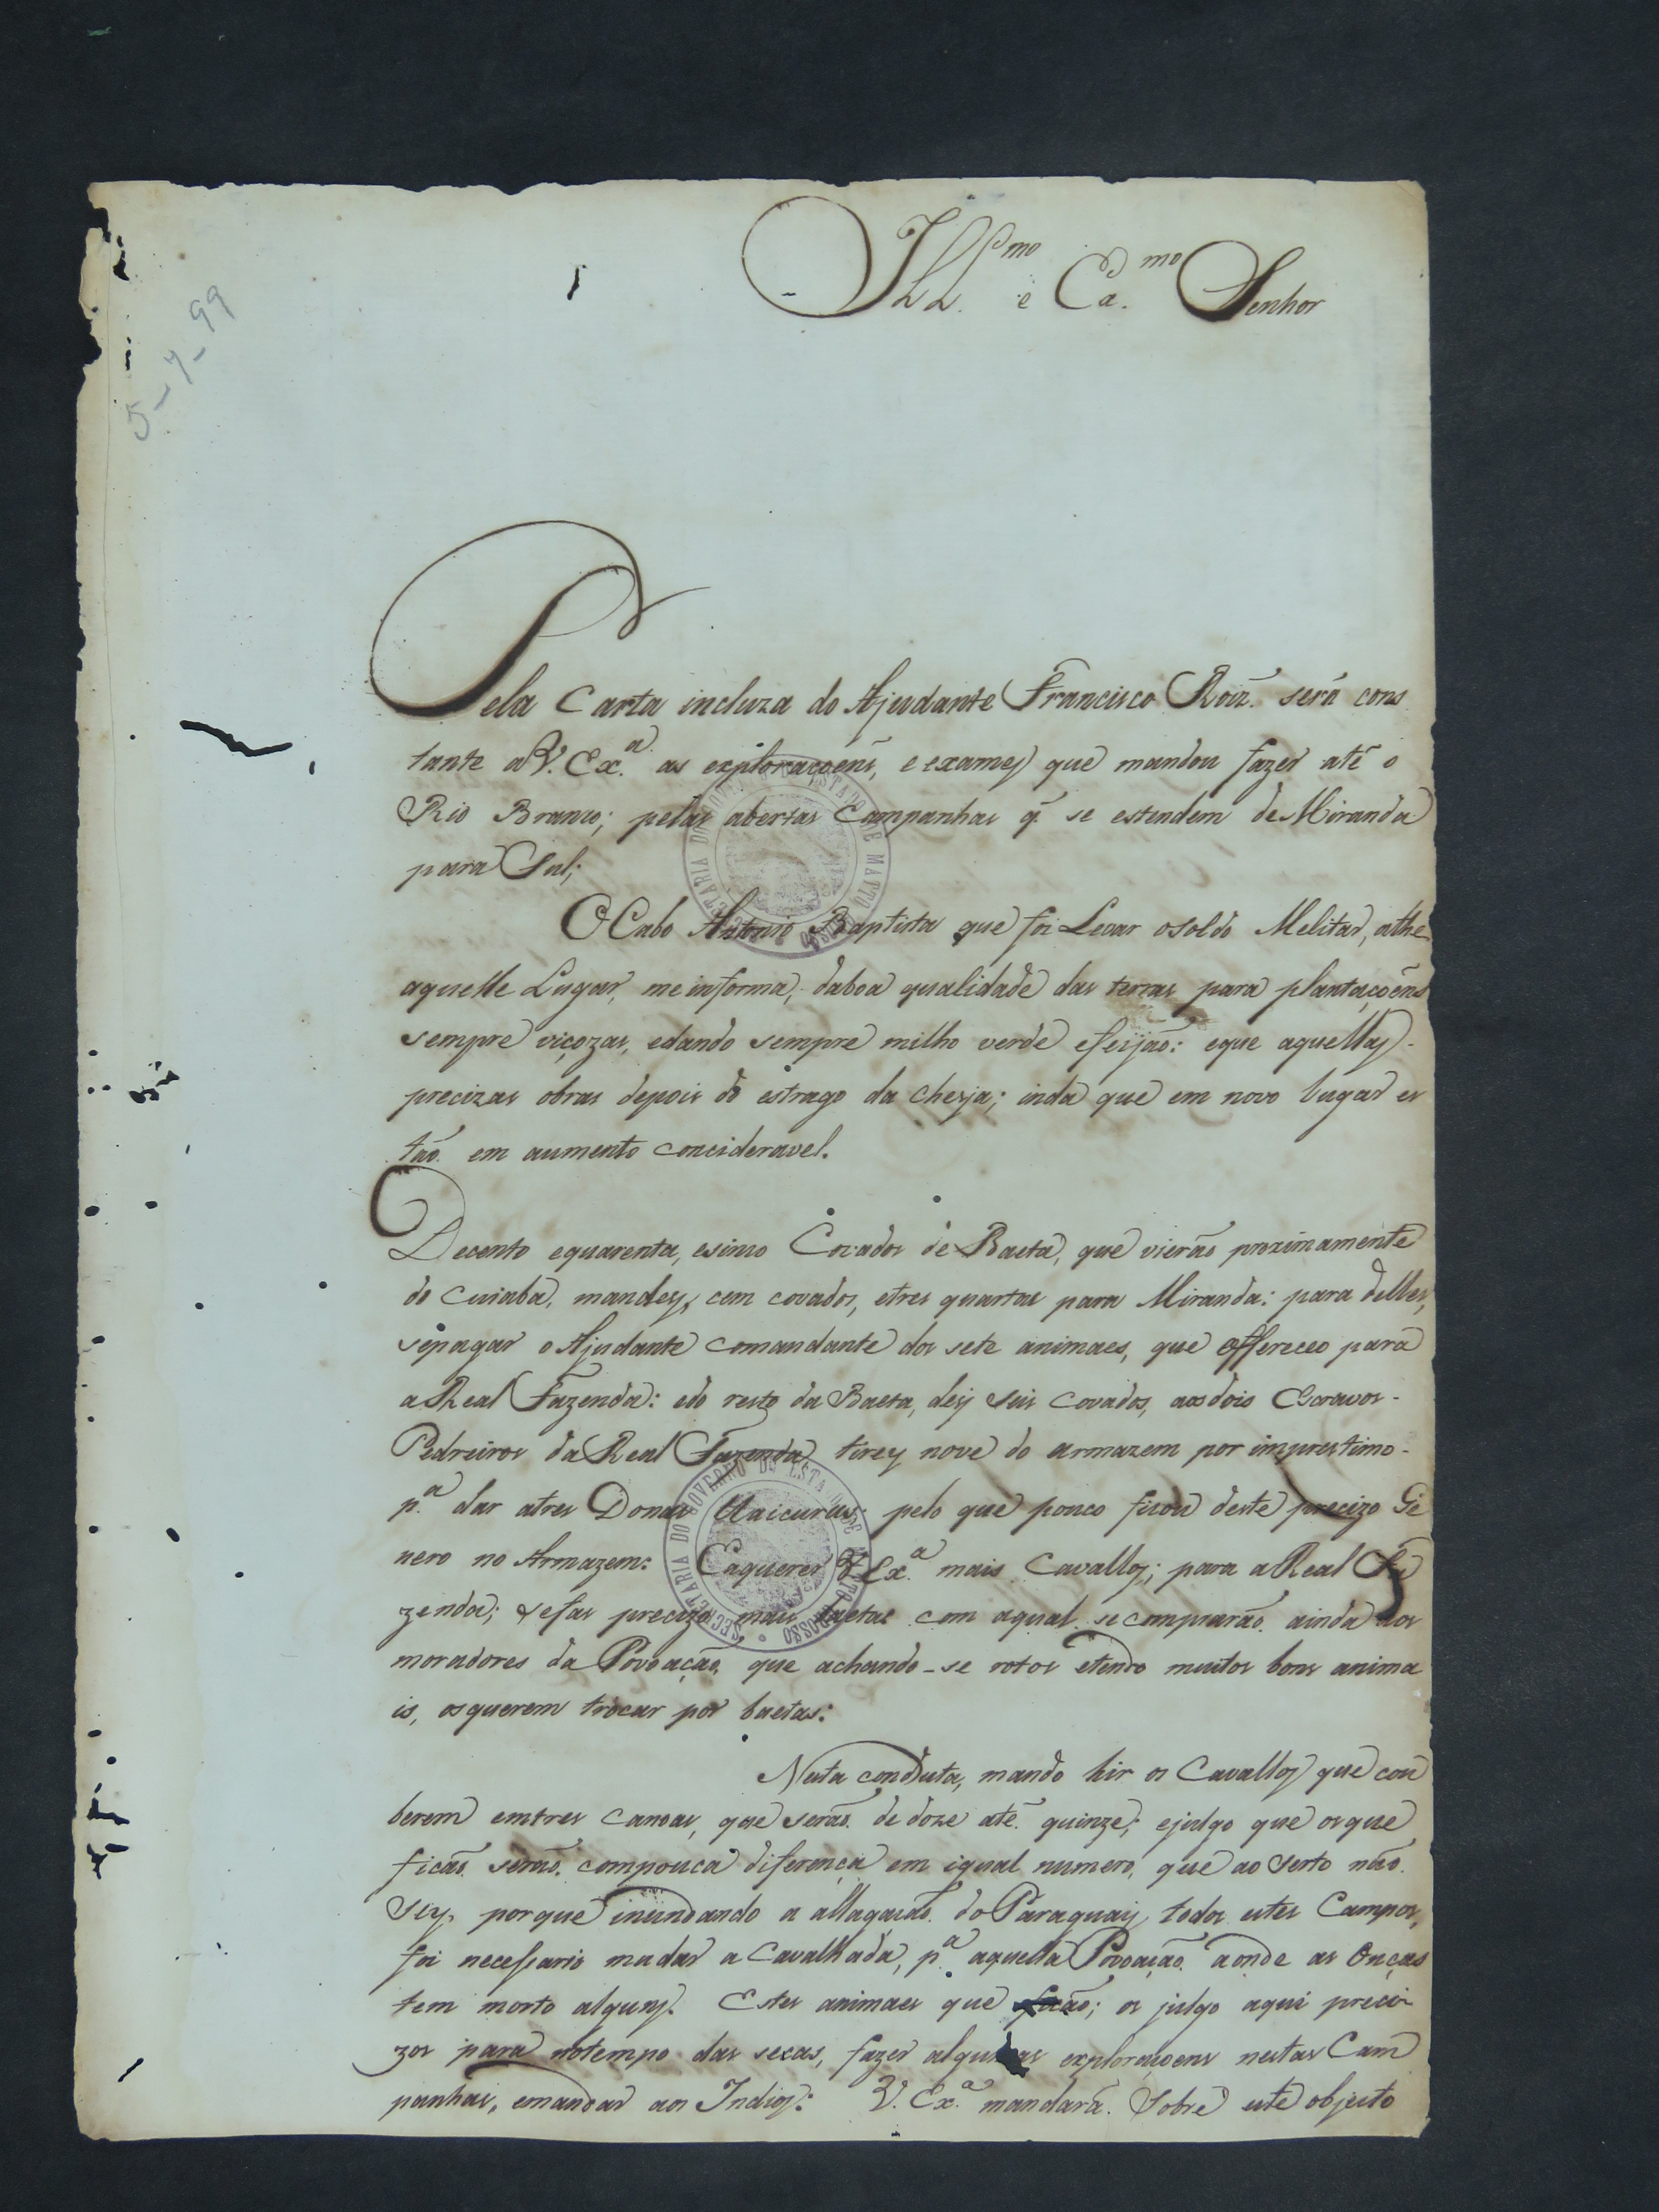 Ill.mo e Ex.mo Senhor
5-7-99
Pela Carta incluza do Ajudante Francisco Roiz. será cons
tante a V. Ex.a as exploraçoens, e exames que mandou fazer até o
Rio Branco; pelas abertas Campanhas q. se estendem de Miranda
para Sul;
O Cabo Antonio Baptista que foi Levar o soldo Melitar, athe
aquelle Lugar, me informa, da boa qualidade das terras para plantaçoens
sempre viçozas, e dando sempre milho verde e feijão: e que aquellas
precizas obras depois do estrago da cheja; inda que em novo lugar es
tão em aumento concideravel.
De cento e quarenta, e sinco Covados de Baeta, que vierão proximamente
do Cuiabá, mandey, cem covados, e tres quartas para Miranda: para delles,
se pagar o Ajudante comandante dos sete animaes, que offereceo para
a Real Fazenda: e do resto da Baeta, dey seis Covados, aos dois Escravos
Pedreiros da Real Fazenda tirey nove do armazem por imprestimo
p.a dar a tres Donas Uaicurus: pelo que pouco ficou deste precizo Ge
nero no Armazem: E a querer V. Ex.a mais Cavallos; para a Real Fa
zenda; se fas precizo mais baetas com a qual se comprarão ainda aos
moradores da Povoação, que achando-se rotos e tendo muitos bons anima
is, os querem trocar por baetas:
Nesta conduta, mando hir os Cavallos que cou
berem em tres canoas, que serão de doze até quinze; e julgo que os que
ficão serão, com pouca diferença em igual numero, que ao serto não
sey, porque inundando a allagação do Paraguay todos estes Campos,
foi necessario mudar a Cavalhada, p.a aquella Povoação aonde as Onças
tem morto alguns. Estes animaes que ficão; os julgo aqui preci
zos para no tempo das secas, fazer algumas exploraçoens nestas Cam
panhas, e mandar aos Indios: V. Ex.a mandará Sobre este objecto
SECRETARIA DO GOVERNO DO ESTADO DE MATTO GROSSO
SECRETARIA DO GOVERNO DO ESTADO DE MATTO GROSSO